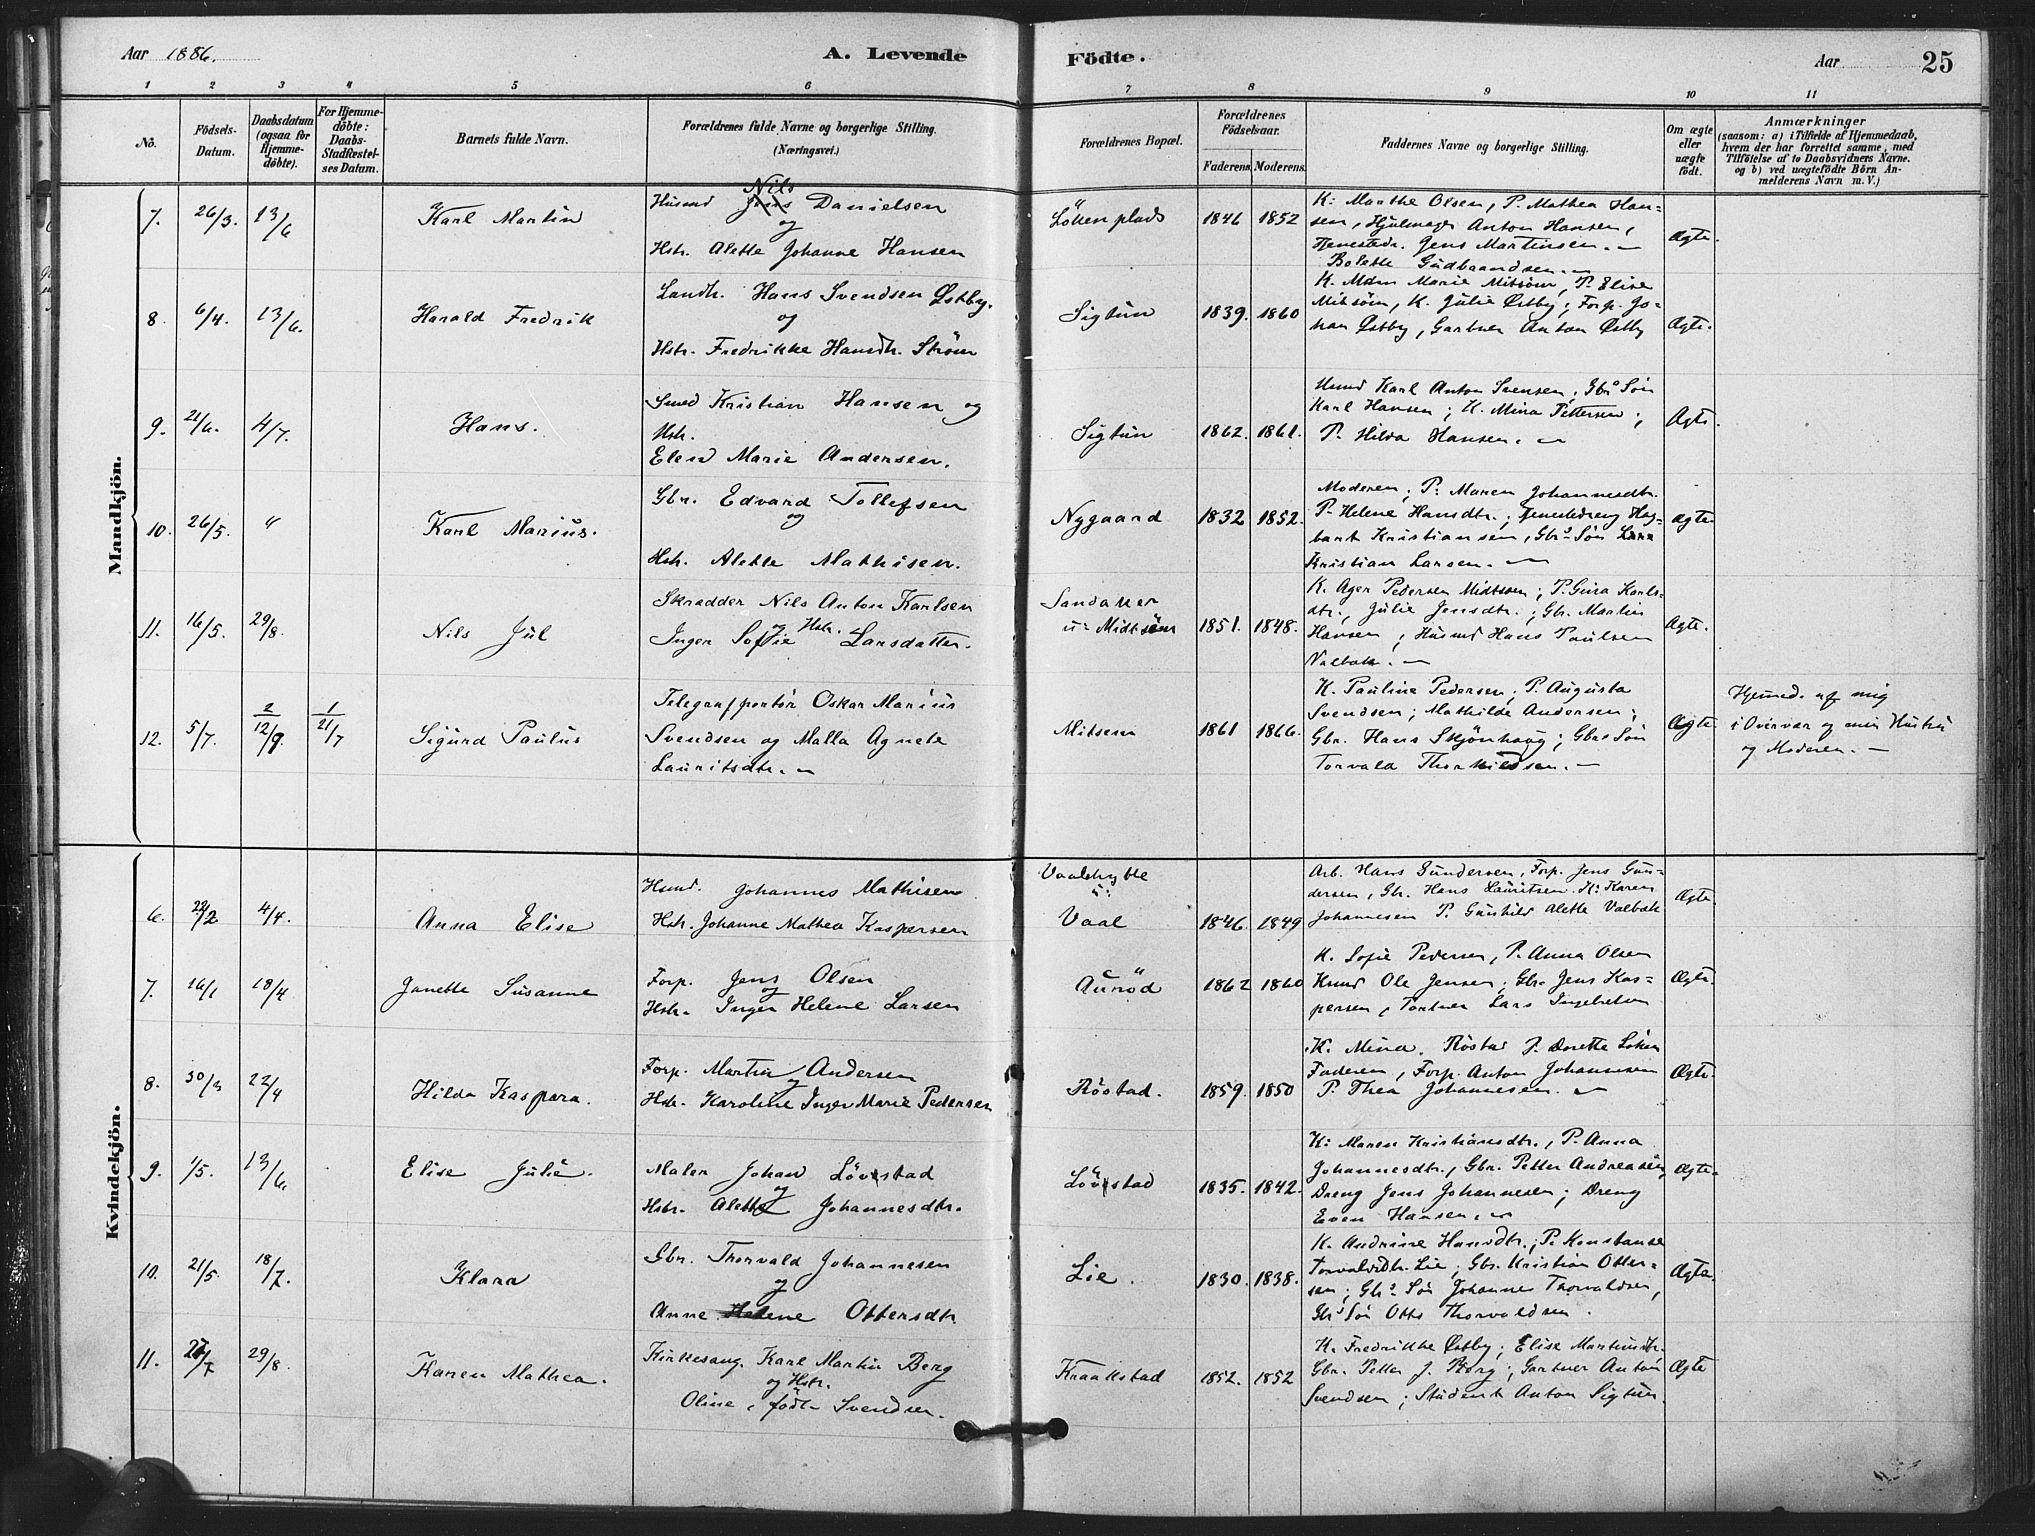 Aar 1886.
A. Levende Födte.
Aar 25
1 2 3 4 5 6 7 8 9 10 11
No.
Födsels-
Datum.
Daabsdatum
(ogsaa for
Hjemme-
döbte).
For Hjemme-
döbte:
Daabs-
Stadfæstel-
ses Datum.
Barnets fulde Navn.
Forældrenes fulde Navne og borgerlige Stilling.
(Næringsvei.)
Forældrenes Bopæl.
Forældrenes
Födselsaar.
Faderens. Moderens.
Faddernes Navne og borgerlige Stilling.
Om ægte
eller
uægte
födt.
Anmærkninger
(saasom: a) i Tilfælde af Hjemmedaab,
hvem der har forrettet samme, med
Tilföielse af to Daabsvidners Navne.
og b) ved uægtefödte Börn An-
melderens Navn m. V.)
Mandkjön.
7. 26/3. 13/6 Karl Martin
Husmd Jens Nils Danielsen
og
Hstr. Alette Johanne Hansen
Löken plads 1846 1852
K: Marthe Olsen, P. Mathea Han-
sen, Hjulmager Anton Hansen,
Tjenestedr. Jens Martinsen.
Bolette Gudbrandsen.
Ægte.
8. 6/4. 13/6. Harald Fredrik
Landh. Hans Svendsen Østby.
og
Hstr. Fredrikke Hansdtr. Ström
Sigtun 1839. 1860
K. Mdm Marie Mitsöm, P. Elise
Mitsöm, K. Julie Østby, Forp. Jo-
han Østby, Gartner Anton Østby
Ægte.
9. 21/6. 4/7. Hans.
Smed Kristian Hansen og
Hstr.
Elen Marie Andersen.
Sigtun 1862. 1861.
Husmd Karl Anton Svensen, Gbrs Sön
Karl Hansen; K. Mina Pettersen;
P. Hilda Hansen.
Ægte.
10. 26/5. " Karl Marius.
Gbr. Edvard Tollefsen
og
Hstr. Alette Mathisen.
Nygaard 1832 1852.
Moderen; P: Maren Johannesdtr.
P. Helene Hansdtr.; Tjenestedreng Hag-
bart Kristiansen, Gbrs Sön Lars
Kristian Larsen.
Ægte.
11. 16/5. 29/8. Nils Jul
Skrædder Nils Anton Karlsen
og Hstr.
Inger Sofie Larsdatter.
Sandaker
u: Midtsöm 1851. 1848.
K. Ager Pedersen Midtsom; P. Gina Karls-
dtr, Julie Jensdtr.; Gbr. Martin
Hansen; Husmd Hans Paulsen
Valbæk.
Ægte.
12. 5/7. 2/12/9. 1/21/7 Sigurd Paulus
Telegrafpontör Oskar Marius
Svendsen og Malla Agnete
Lauritsdtr.
Mitsem 1861 1866.
K. Pauline Pedersen; P. Augusta
Svendsen; Mathilde Andersen;
Gbr. Hans Skjönhaug; Gbrs Sön
Torvald Thorkildsen.
Ægte.
Hjemmed. af mig
i Overvær og min Hustru
og Moderen.
Kvindekjön.
6. 22/2 4/4. Anna Elise
Husmd. Johannes Mathisen
Hstr. Johanne Mathea Kaspersen
Vaalshytte
u:
Vaal 1846. 1849
Arb. Hans Gundersen, Forp. Jens Gun-
dersen, Gbr. Hans Lauritsen. K: Karen
Johannesen P. Gunhild Alette Valbæk
Ægte.
7. 16/1 18/4 Janette Susanne
Forp. Jens Olsen
og
Hstr. Inger Helene Larsen
Auröd 1862 1860
K. Sofie Pedersen, P. Anna Olsen
Husmd Ole Jensen; Gbr. Jens Kas-
persen, Tortner Lars Ingebretsen
Ægte.
8. 30/3 22/4 Hilda Kaspara.
Forp. Martin Andersen
og
Hstr. Karoline Inger Marie Pedersen
Röstad. 1859. 1850
K. Mina Röstad J. Dorette Löken
Faderen, Forp. Anton Johannesen
P. Thea Johannesen.
Ægte.
9. 1/5. 13/6. Elise Julie.
Maler Johan Lövestad
og
Hstr. Alette Johannesdtr.
Lövestad 1835. 1842.
K: Maren Kristiansdtr., P. Anna
Johannesdtr., Gbr. Petter Andreasen,
Dreng Jens Johannesen; Dreng
Even Hansen.
Ægte.
10. 21/5. 18/7. Klara
Gbr. Thorvald Johannesen
og
Anne Helene Ottersdtr.
Lie. 1830. 1838.
K. Andrine Hansdtr.; P. Konstanse
Torvaldsdtr. Lie; Gbr. Kristian Otter-
sen; Gbrs Sön Johannes Thorvaldsen,
Gbrs Sön Otto Thorvaldsen.
Ægte.
11. 27/7 29/8. Karen Mathea.
Kirkesang. Karl Martin Berg
og Hstr.
Oline, födt Svendsen.
Kraakstad 1852. 1852
K. Fredrikke Østby; Elise Martinsdtr.
Gbr. Petter J. Berg; Gartner Anton
Svendsen; Student Anton Sigtun.
Ægte